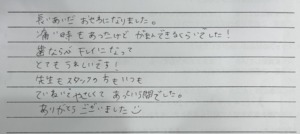 長いあいだ おせわになりました。
痛い時もあったけど がまんできなくらいでした!
歯ならびが キレイになって
とても うれしいです!
先生もスタッフの方もいつも
ていねいで やさしくて あっという間でした。
ありがとう ございました